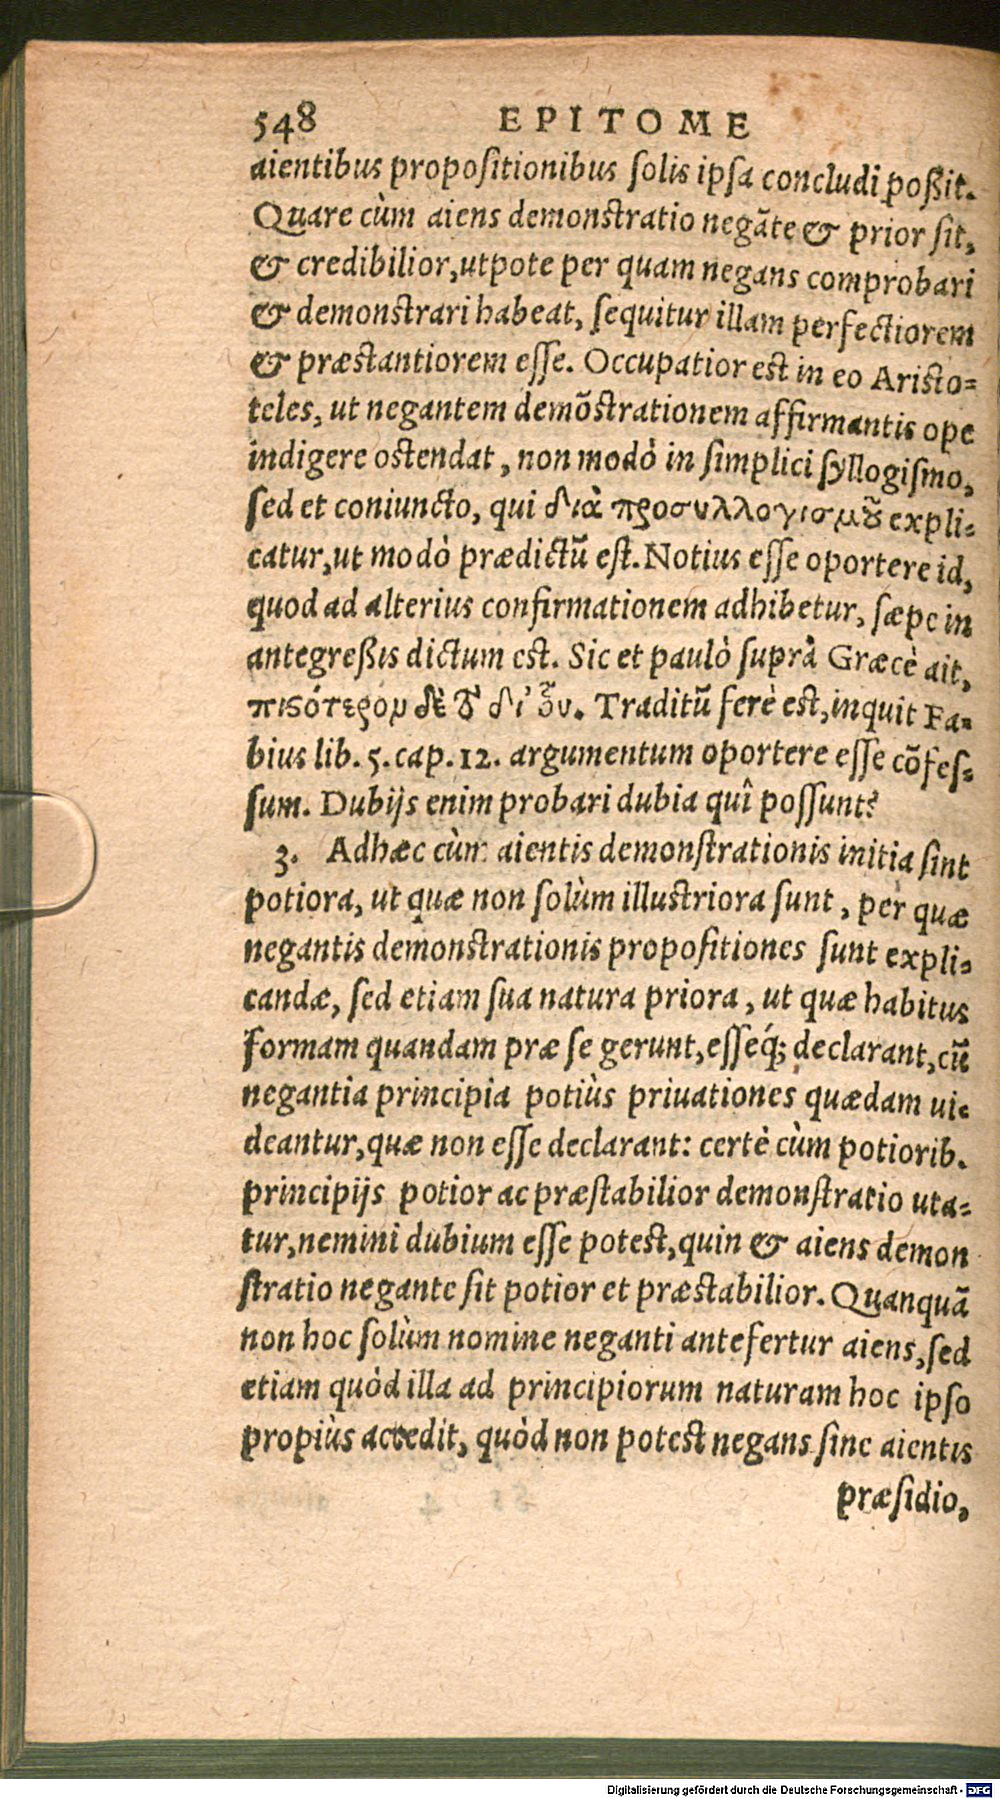 548 EPITOME
aientibus propositionibus solis ipsa concludi poßit.
Quare cùm aiens demonstratio negãte & prior sit,
& credibilior, utpote per quam negans comprobari
& demonstrari habeat, sequitur illam perfectiorem
& præstantiorem esse. Occupatior est in eo Aristo=
teles, ut negantem demõstrationem affirmantis ope
indigere ostendat, non modò in simplici syllogismo,
sed et coniuncto, qui διὰ προσυλλογισμοῦ expli=
catur, ut modò prædictũ est. Notius esse oportere id,
quod ad alterius confirmationem adhibetur, sæpe in
antegreßis dictum est. Sic et paulò suprà Græcè ait,
πιϛότερον δὲ τὸ δι' οὗ. Traditũ ferè est, inquit Fa=
bius lib. 5. cap. 12. argumentum oportere esse cõfes=
sum. Dubijs enim probari dubia quî possunt?
3. Adhæc cùm aientis demonstrationis initia sint
potiora, ut quæ non solùm illustriora sunt, per quæ
negantis demonstrationis propositiones sunt expli=
candæ, sed etiam sua natura priora, ut quæ habitus
formam quandam præ se gerunt, esseq́; declarant, cũ
negantia principia potiùs priuationes quædam ui=
deantur, quæ non esse declarant: certè cùm potiorib.
principijs potior ac præstabilior demonstratio uta=
tur, nemini dubium esse potest, quin & aiens demon
stratio negante sit potior et præstabilior. Quanquã
non hoc solùm nomine neganti antefertur aiens, sed
etiam quòd illa ad principiorum naturam hoc ipso
propiùs accedit, quòd non potest negans sine aientis
præsidio,
Digitalisierung gefördert durch die Deutsche Forschungsgemeinschaft - DFG